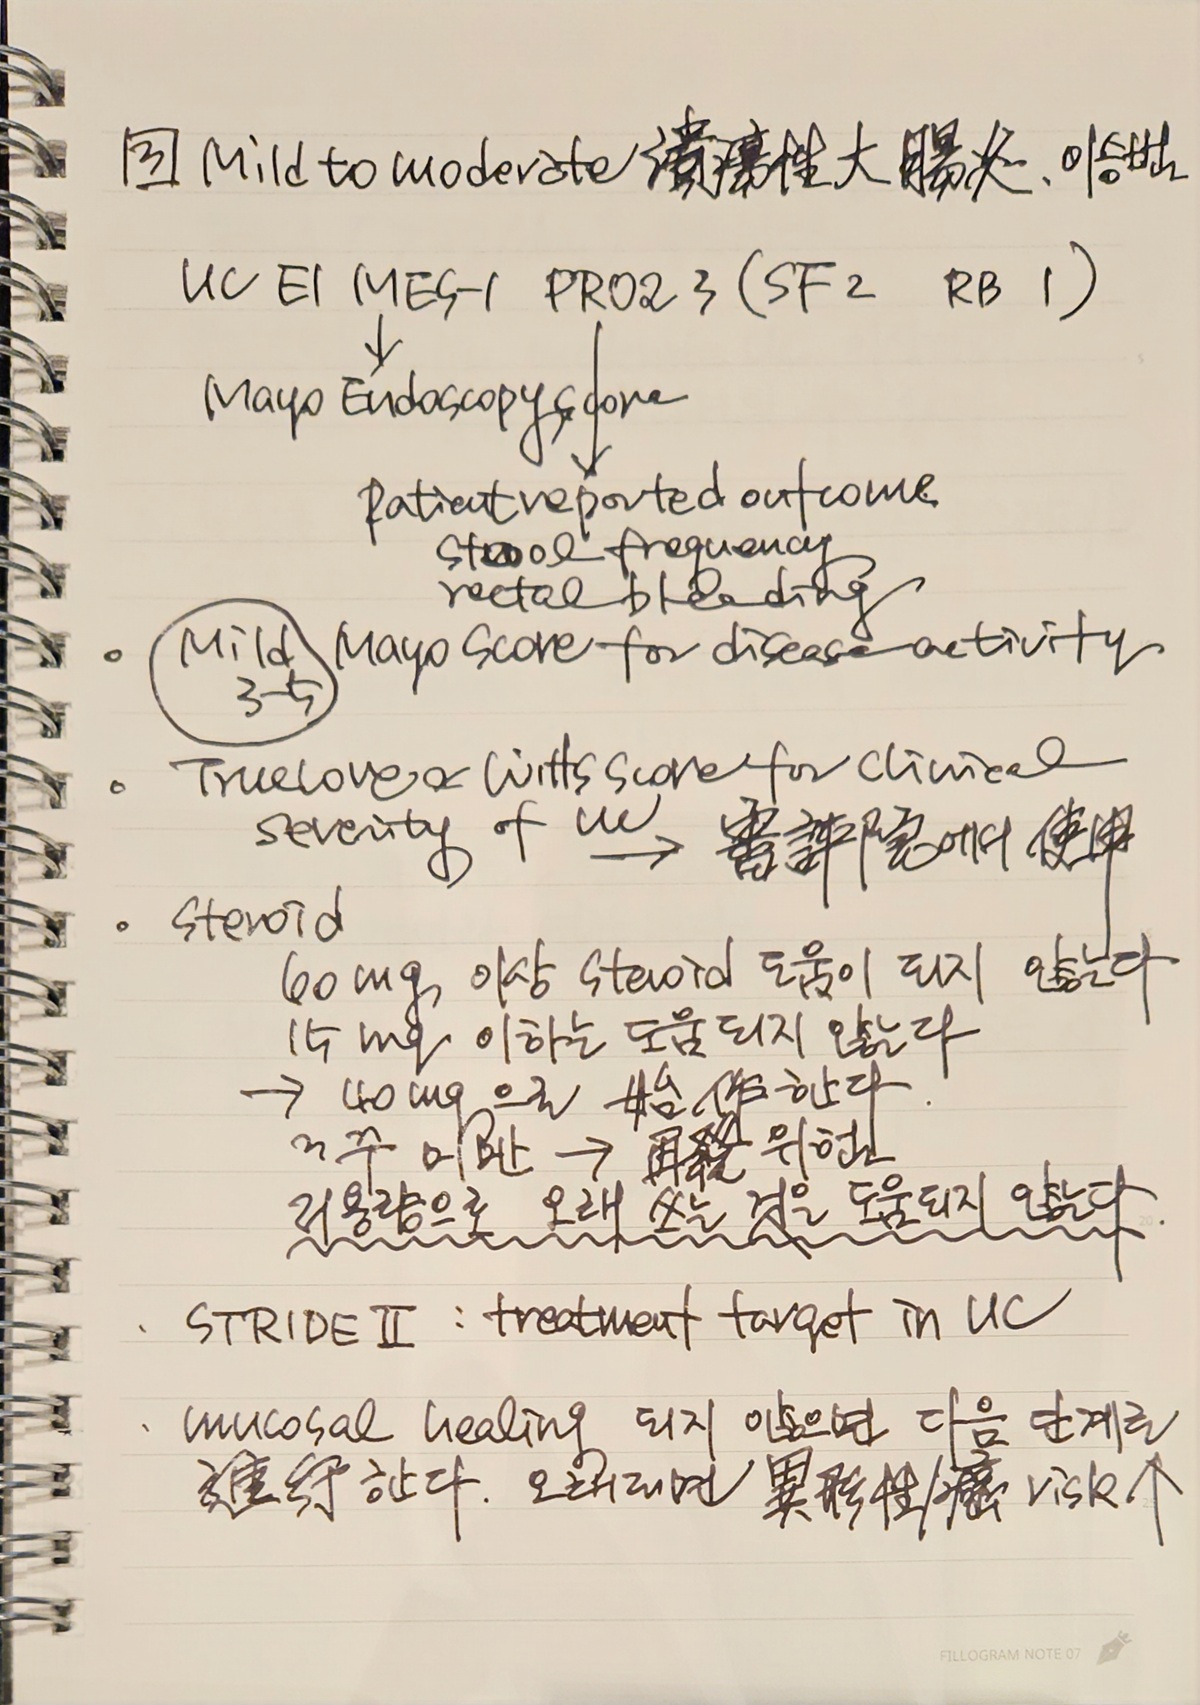 [3] Mild to moderate 潰瘍性大腸炎.
UC E1 MES-1 PRO2 3 (SF 2 RB 1)
↓
Mayo Endoscopy score
Patient reported outcome
stool frequency
rectal bleeding
• Mild Mayo Score for disease activity
3-5
• Truelove & Witts score for clinical
severity of UC → 審評院에서 使用
• steroid
60mg 이상 steroid 도움이 되지 않는다
15mg 이하는 도움되지 않는다
→ 40mg으로 始作한다.
3주 미만 → 再發 위험
저용량으로 오래 쓰는 것은 도움되지 않는다.
· STRIDE II : treatment target in UC
· mucosal healing 되지 않으면 다음 단계로
進行한다. 오래되면 異形性/癌 risk ↑
FILLOGRAM NOTE 07